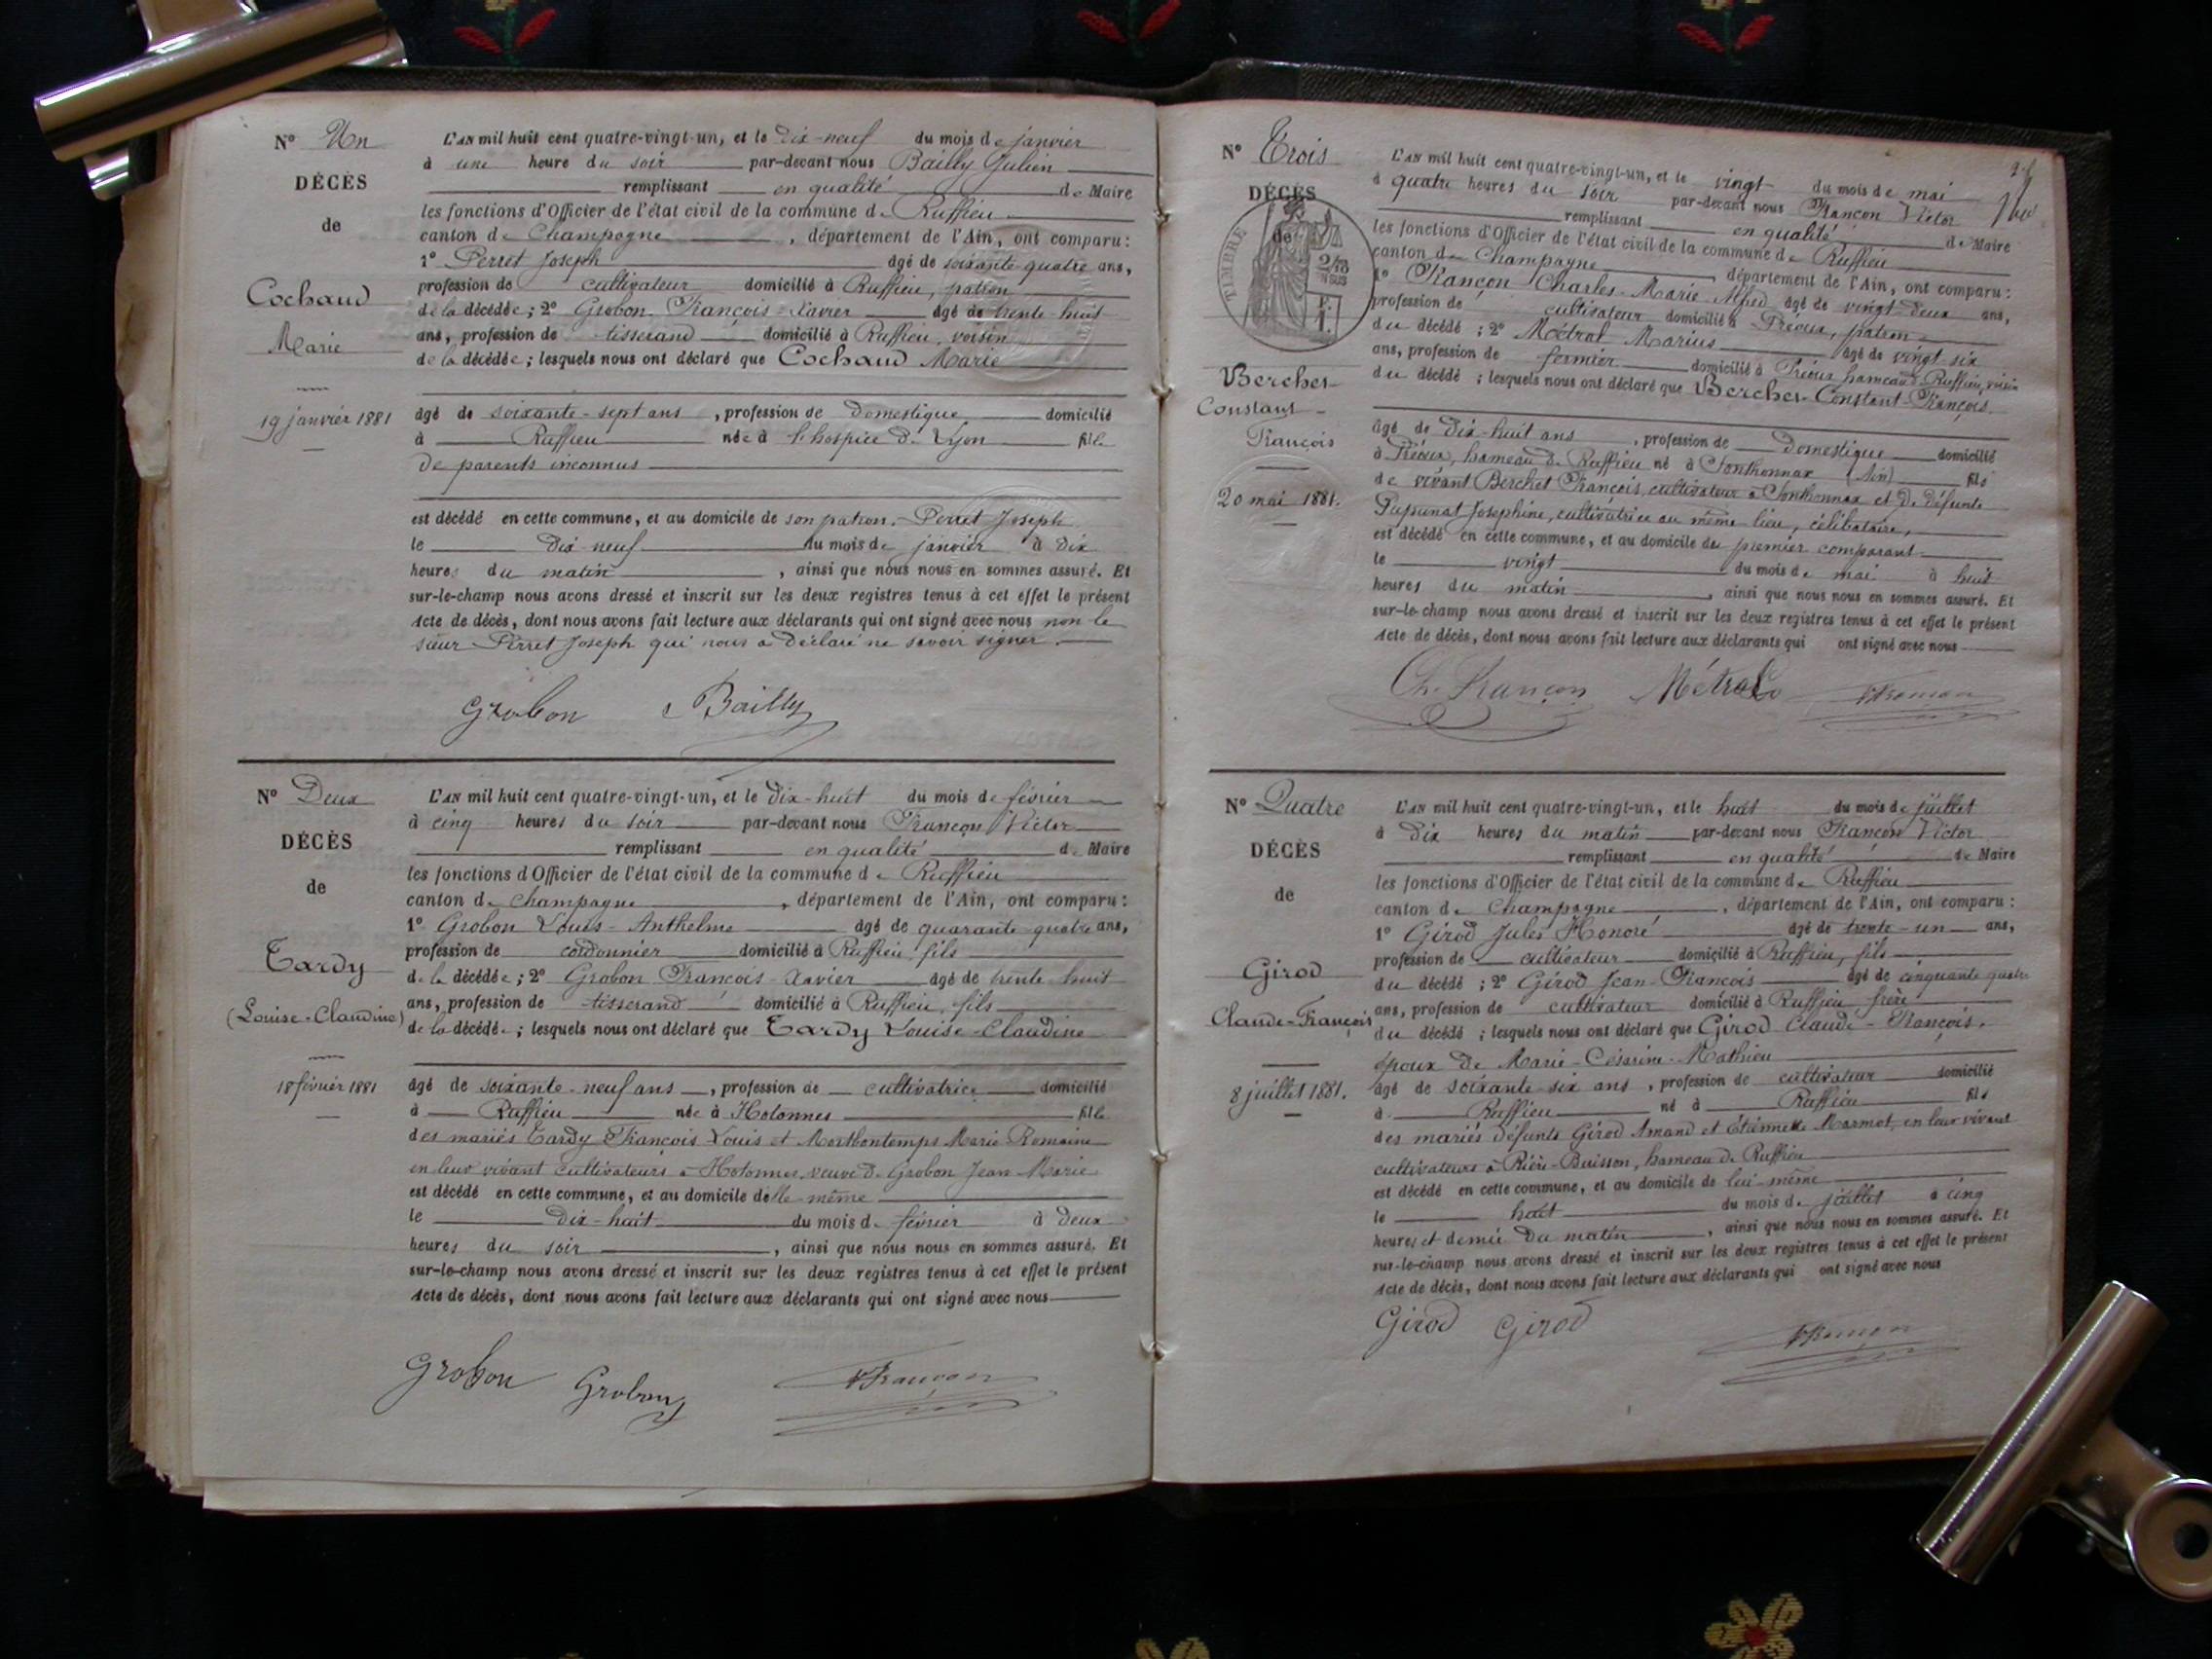 N° Un
DÉCÈS
de
Cochaud
Marie
19 janvier 1881
L'AN mil huit cent quatre-vingt-un, et le dix-neuf du mois de janvier
à une heure du soir par-devant nous Bailly Julien
remplissant en qualité de Maire
les fonctions d'Officier de l'état civil de la commune de Ruffieu
canton de Champagne, département de l'Ain, ont comparu:
1° Perret Joseph âgé de soixante-quatre ans,
profession de cultivateur domicilié à Ruffieu, patron
de la décédée; 2° Grobon François-Xavier âgé de trente huit
ans, profession de tisserand domicilié à Ruffieu, voisin
de la décédée; lesquels nous ont déclaré que Cochaud Marie
âgé de soixante-sept ans, profession de domestique domicilié
à Ruffieu née à l'hospice de Lyon fille
de parents inconnus
est décédé en cette commune, et au domicile de son patron, Perret Joseph
le dix-neuf du mois de janvier à dix
heures du matin, ainsi que nous nous en sommes assuré. Et
sur-le-champ nous avons dressé et inscrit sur les deux registres tenus à cet effet le présent
acte de décès, dont nous avons fait lecture aux déclarants qui ont signé avec nous non le
sieur Perret Joseph qui nous a déclaré ne savoir signer.
Grobon Bailly
N° Deux
DÉCÈS
de
Tardy
(Louise-Claudine)
18 février 1881
L'AN mil huit cent quatre-vingt-un, et le dix-huit du mois de février
à cinq heures du soir par-devant nous Françon Victor
remplissant en qualité de Maire
les fonctions d'Officier de l'état civil de la commune de Ruffieu
canton de Champagne, département de l'Ain, ont comparu:
1° Grobon Louis-Anthelme âgé de quarante-quatre ans,
profession de cordonnier domicilié à Ruffieu, fils
de la décédée; 2° Grobon François-Xavier âgé de trente huit
ans, profession de tisserand domicilié à Ruffieu, fils
de la décédée; lesquels nous ont déclaré que Tardy Louise-Claudine
âgé de soixante-neuf ans, profession de cultivatrice domicilié
à Ruffieu née à Hotonnes fille
des mariés Tardy François Louis et Montbontemps Marie Romaine
en leur vivant cultivateurs à Hotonnes, veuve de Grobon Jean-Marie
est décédé en cette commune, et au domicile d'elle-même
le dix-huit du mois de février à deux
heures du soir, ainsi que nous nous en sommes assuré. Et
sur-le-champ nous avons dressé et inscrit sur les deux registres tenus à cet effet le présent
acte de décès, dont nous avons fait lecture aux déclarants qui ont signé avec nous
Grobon Grobon VFrançon
N° Trois
DÉCÈS
de
TIMBRE
Berchet
Constant-
François
20 mai 1881.
L'AN mil huit cent quatre-vingt-un, et le vingt du mois de mai
à quatre heures du soir par-devant nous Françon Victor
remplissant en qualité de Maire
les fonctions d'Officier de l'état civil de la commune de Ruffieu
canton de Champagne département de l'Ain, ont comparu:
1° Françon Charles-Marie-Alfred âgé de vingt-deux ans,
profession de cultivateur domicilié à Préoux, patron
du décédé; 2° Métral Marius âgé de vingt-six
ans, profession de fermier domicilié à Préoux hameau de Ruffieu, voisin
du décédé; lesquels nous ont déclaré que Berchet Constant-François
âgé de dix-huit ans, profession de domestique domicilié
à Préoux, hameau de Ruffieu né à Sonthonnax (Ain) fils
de vivant Berchet François, cultivateur à Sonthonnax et de défunte
Josephine, cultivatrice au même lieu, célibataire,
est décédé en cette commune, et au domicile du premier comparant
le vingt du mois de mai à huit
heures du matin, ainsi que nous nous en sommes assuré. Et
sur-le-champ nous avons dressé et inscrit sur les deux registres tenus à cet effet le présent
acte de décès, dont nous avons fait lecture aux déclarants qui ont signé avec nous
Ch. Françon Métral VFrançon
N° Quatre
DÉCÈS
de
Girod
Claude-François
8 juillet 1881.
L'AN mil huit cent quatre-vingt-un, et le huit du mois de juillet
à dix heures du matin par-devant nous Françon Victor
remplissant en qualité de Maire
les fonctions d'Officier de l'état civil de la commune de Ruffieu
canton de Champagne, département de l'Ain, ont comparu:
1° Girod Jules Honoré âgé de trente-un ans,
profession de cultivateur domicilié à Ruffieu, fils
du décédé; 2° Girod Jean-François âgé de cinquante quatre
ans, profession de cultivateur domicilié à Ruffieu, frère
du décédé; lesquels nous ont déclaré que Girod Claude-François,
époux de Marie-Césarine-Mathieu
âgé de soixante-six ans, profession de cultivateur domicilié
à Ruffieu né à Ruffieu fils
des mariés défunts Girod Amand et Étiennette Marmot, en leur vivant
cultivateurs à Buisson, hameau de Ruffieu
est décédé en cette commune, et au domicile de lui-même
le huit du mois de juillet à cinq
heures et demie du matin, ainsi que nous nous en sommes assuré. Et
sur-le-champ nous avons dressé et inscrit sur les deux registres tenus à cet effet le présent
acte de décès, dont nous avons fait lecture aux déclarants qui ont signé avec nous
Girod Girod VFrançon